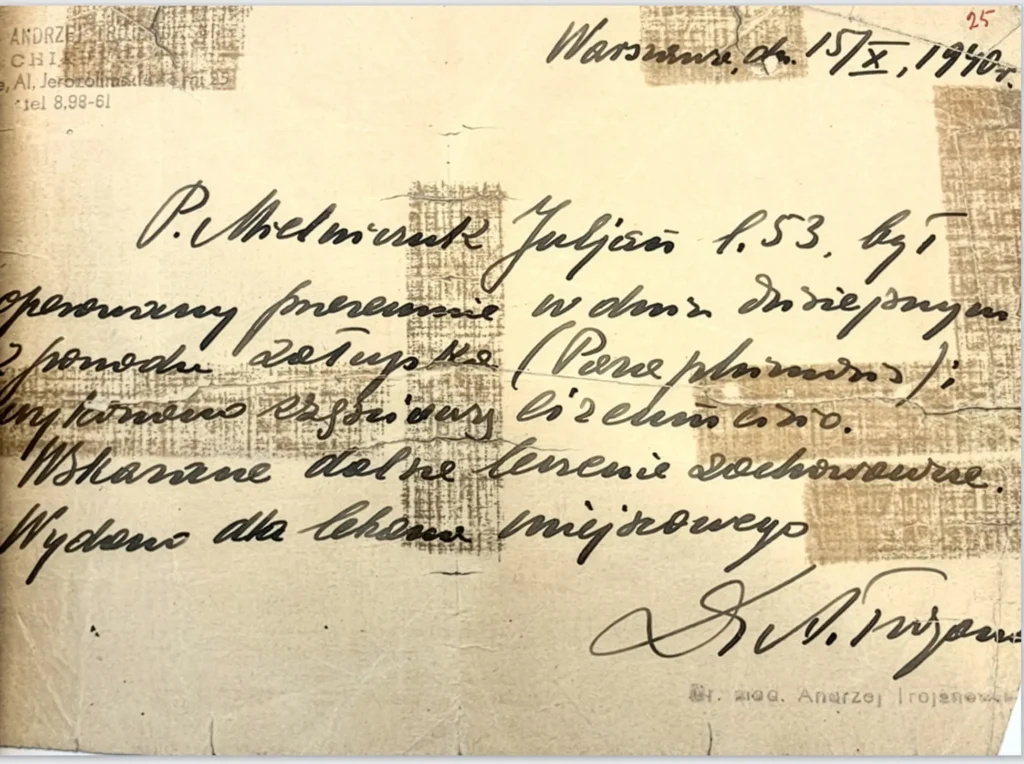 25
ANDRZEJ TROJANOWSKI
CHIR
Al. Jerozolimskie 25
tel 8.98-61
Warszawa, dn. 15/X, 1940 r.
P. Mielniczuk Juljan l. 53, był
operowany przezemnie w dniu dzisiejszym
z powodu załupka (Paraphimosis);
wykonano częściowy circumcisio.
Wskazane dalsze leczenie zachowawcze.
Wydano dla lekarza miejscowego
Dr A. Trojano
Dr. med. Andrzej Trojanowski